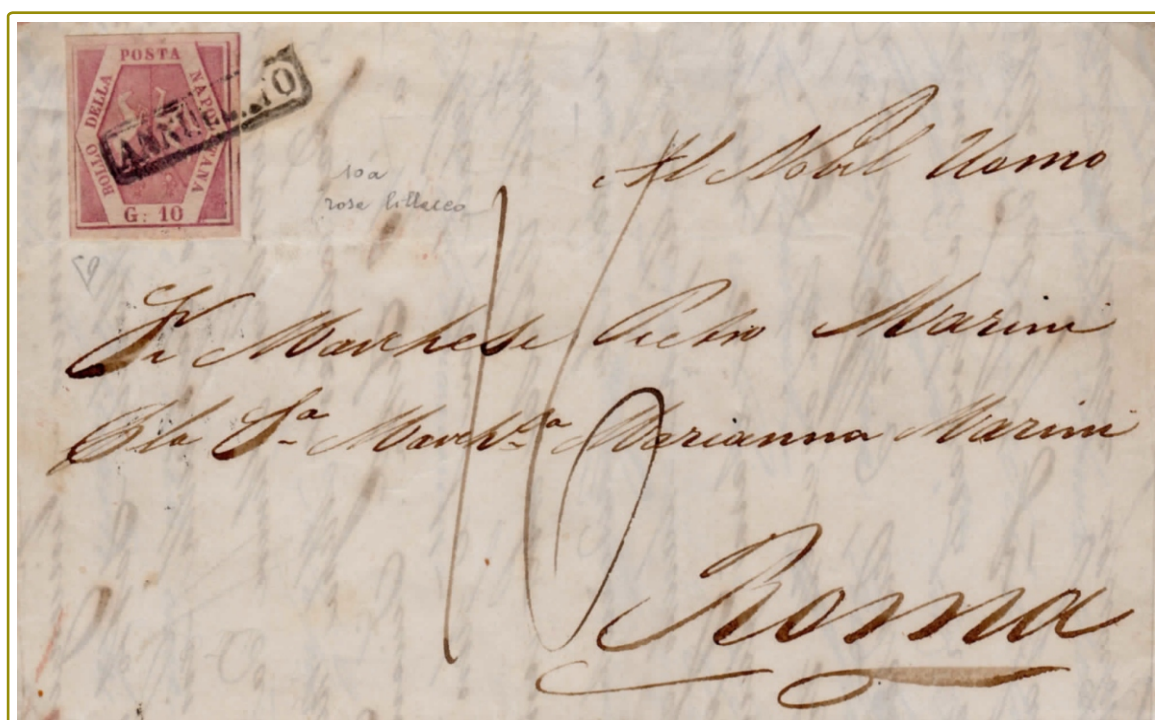 BOLLO DELLA POSTA NAPOLETANA
G. 10
ANNULLATO
10a
rosa lillaceo
16
Al Nobil Uomo
Sr Marchese Pietro Marini
E la Sa Marchsa Marianna Marini
Roma